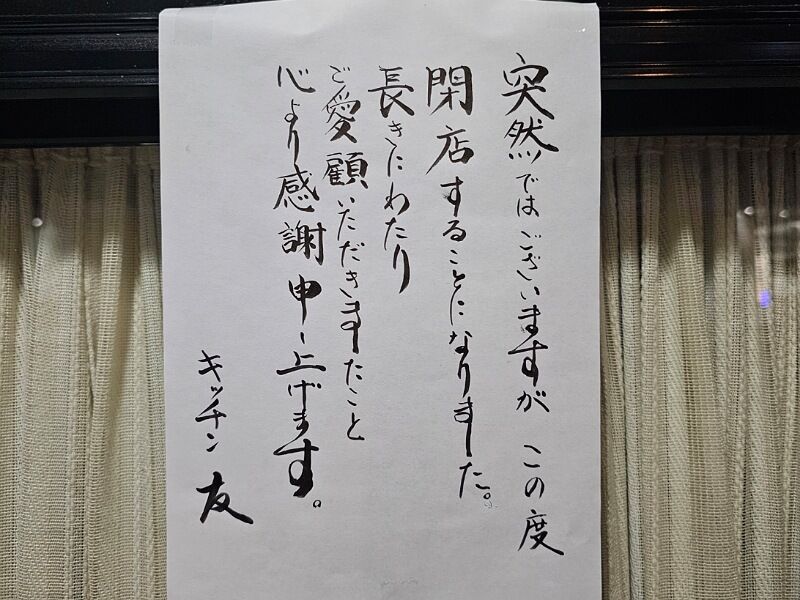 突然ではございますが この度
閉店することになりました。
長きにわたり
ご愛顧いただきましたこと
心より感謝申し上げます。
キッチン 友